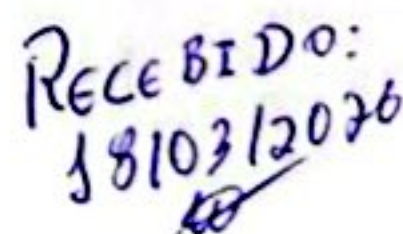 RECEBIDO:
18/03/2026